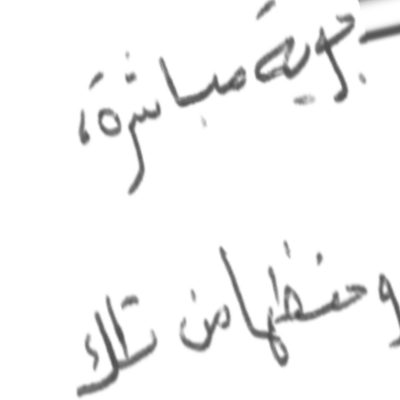 جوية مباشرة،
وحفظها من تلك